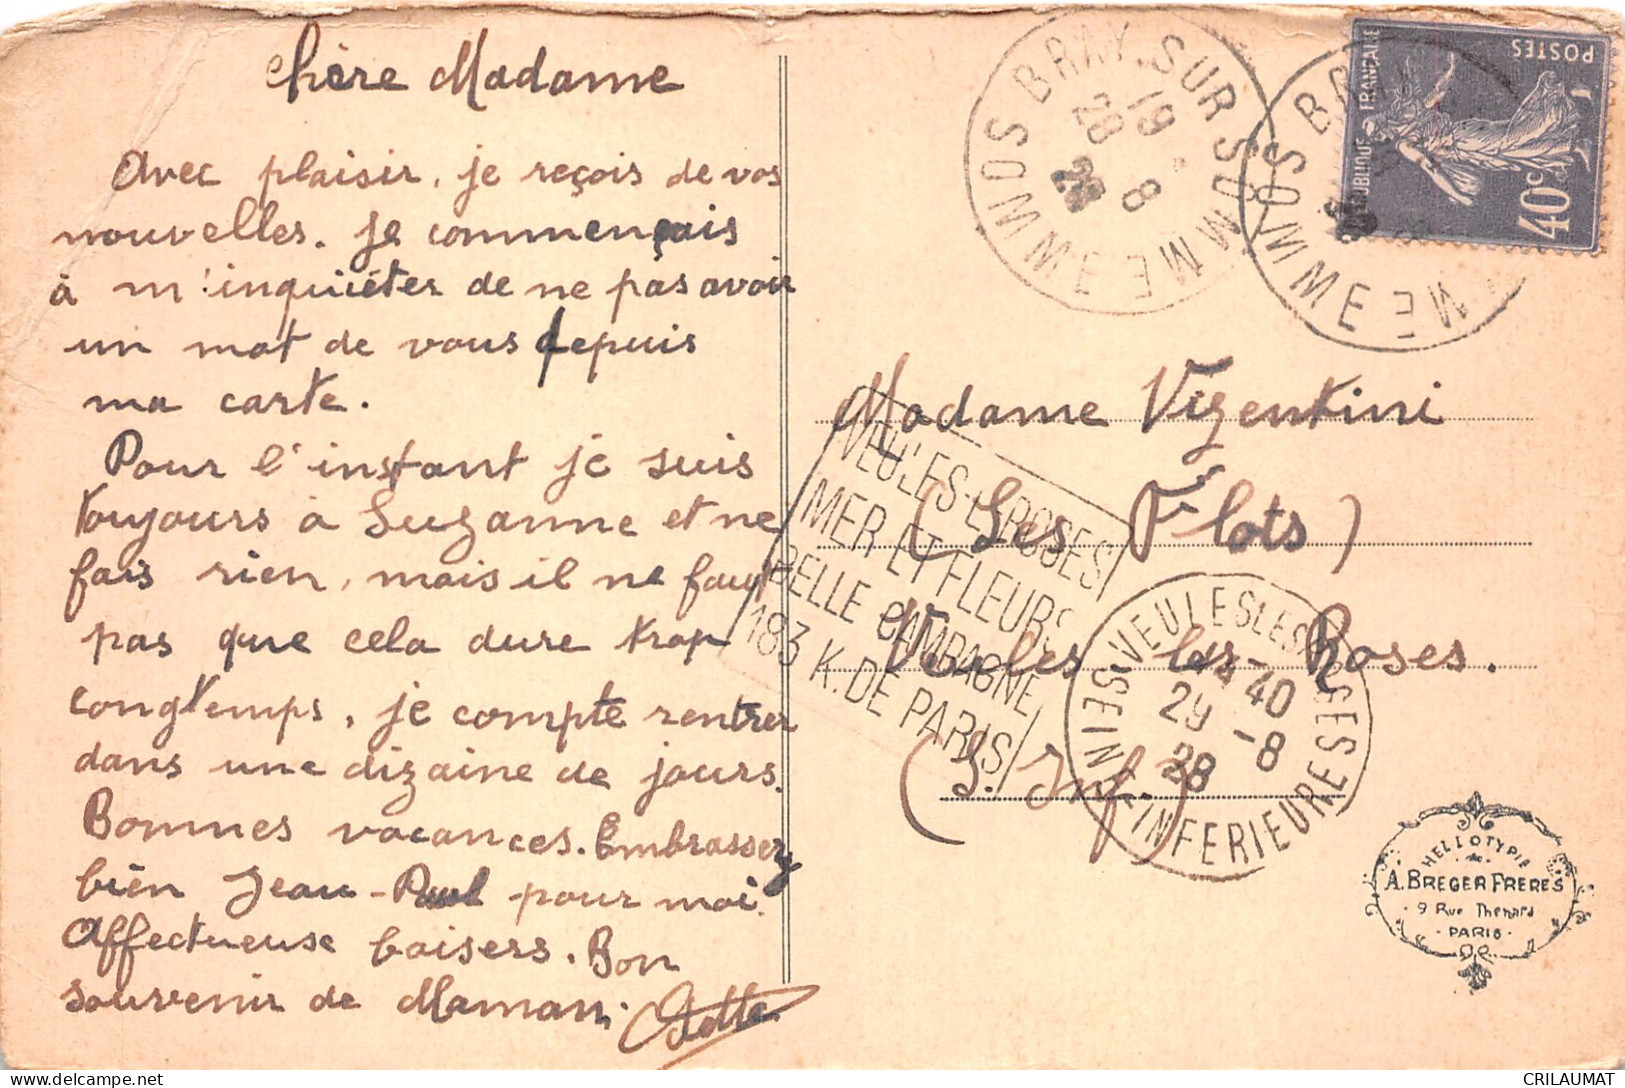 Chère Madame
Avec plaisir, je reçois de vos
nouvelles. Je commençais
à m'inquiéter de ne pas avoir
un mot de vous depuis
ma carte.
Pour l'instant je suis
toujours à Suzanne et ne
fais rien, mais il ne faut
pas que cela dure trop
longtemps, je compte rentrer
dans une dizaine de jours.
Bonnes vacances. Embrassez
bien Jean-Paul pour moi.
Affectueuse baisers. Bon
souvenir de Maman.
BRAY-SUR-SOMME
SOMME
19
28 - 8
28
POSTES
REPUBLIQUE FRANÇAISE
40c
Madame Vizentini
(Les Flots)
Veules les Roses.
(S. Inf.)
VEULES-L-ROSES
MER ET FLEURS
BELLE CAMPAGNE
183 K. DE PARIS
VEULES LES ROSES
SEINE-INFERIEURE
-40
29 -8
28
HELIOTYPIE
A. BREGER FRERES
9 Rue Thenard
PARIS
CRILAUMAT